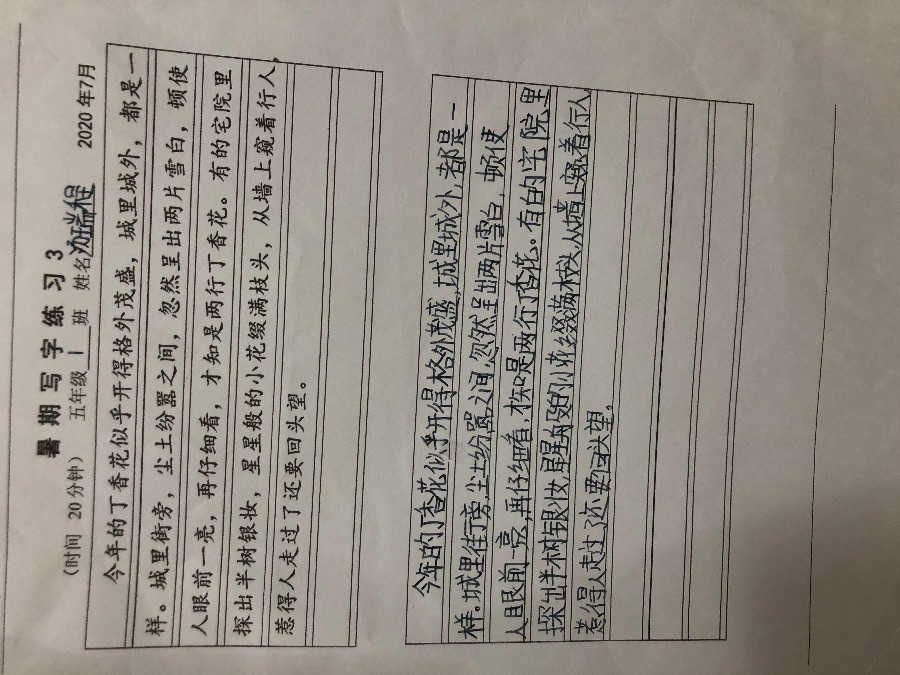 暑期写字练习3
（时间 20分钟） 五年级 1 班 姓名 汤瑞程 2020年7月
今年的丁香花似乎开得格外茂盛，城里城外，都是一
样。城里街旁，尘土纷嚣之间，忽然呈出两片雪白，顿使
人眼前一亮，再仔细看，才知是两行丁香花。有的宅院里
探出半树银妆，星星般的小花缀满枝头，从墙上窥着行人，
惹得人走过了还要回头望。
今年的丁香花似乎开得格外茂盛，城里城外，都是一
样。城里街旁，尘土纷嚣之间，忽然呈出两片雪白，顿使
人眼前一亮，再仔细看，才知是两行丁香花。有的宅院里
探出半树银妆，星星般的小花缀满枝头，从墙上窥着行人
惹得人走过了还要回头望。